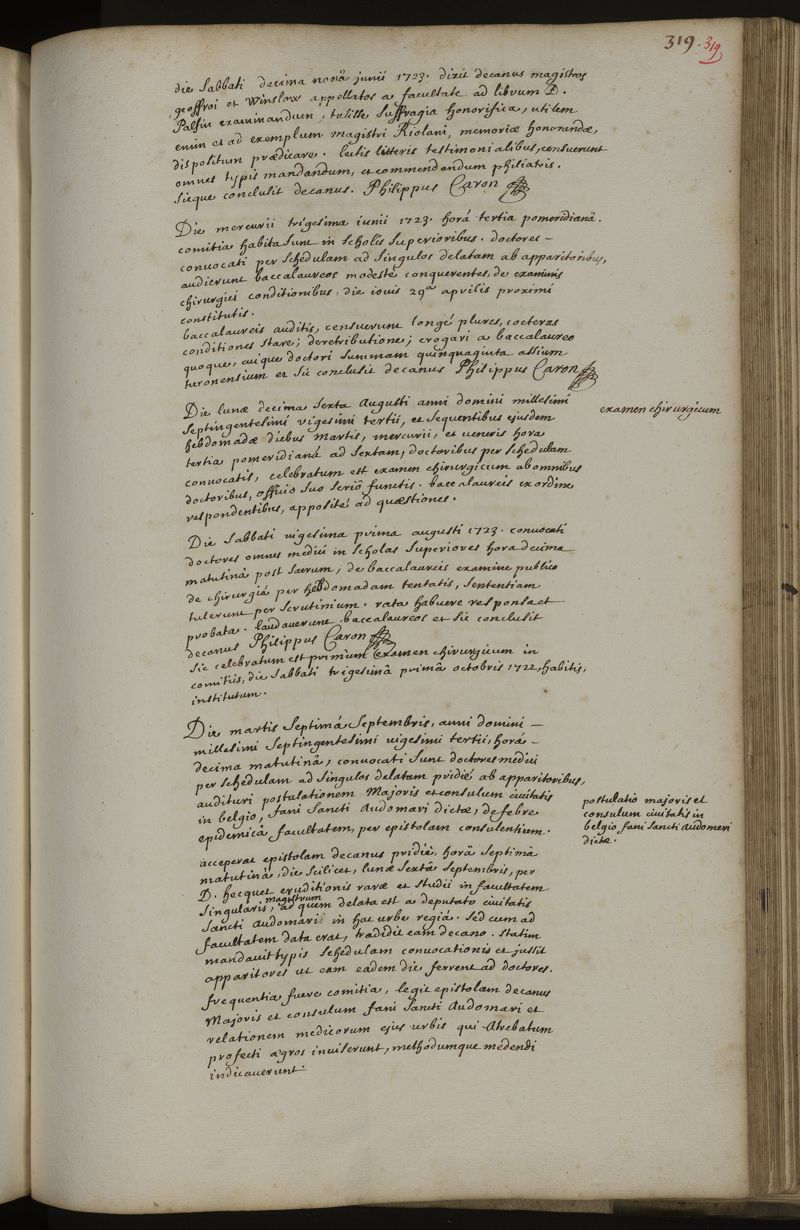 319. 319
die Sabbati decima nonâ junii 1723. dixit decanus magistros
geoffroi et Winslow appellatos a facultate ad librum D.
Palfin examinandum, tulisse suffragia honorifica, utilem
enim et ad exemplum magistri Riolani, memoriæ honorandæ,
dispositum prædicare. lectis litteris testimonialibus, censuerunt
omnes typis mandandum, et commendandum philiatris.
sicque conclusit decanus. Philippus Caron
Die mercurii trigesima iunii 1723. horâ tertia pomeridianâ.
comitia habita sunt in scholis superioribus. doctores –
convocati per schedulam ad singulos delatam ab apparitoribus,
audierunt baccalaureos modestè conquerentes, de examinis
chirurgici conditionibus, die iovis 29a aprilis proximi
constitutis.
baccalaureis auditis, censuerunt longè plures, cœteras
conditiones stare; de retributione; erogari a baccalaureo
quoque, cuique doctori summam quinquaginta assium
turonensium et sic conclusit decanus Philippus Caron
Die lunæ decima sexta Augusti anni domini millesimi
septingentesimi vigesimi tertii, et sequentibus ejusdem
hebdomadæ diebus martis, mercurii, et veneris hora
tertia pomeridianâ ad sextam, doctoribus per schedulam
convocatis, celebratum est examen chirurgicum ab omnibus
doctoribus, officio suo seriò functis. baccalaureis ex ordine
respondentibus, appositè ad quæstiones.
examen chirurgicum
Die Sabbati vigesima prima augusti 1723. convocati
doctores omnes medici in scholas superiores hora decima
matutinâ post sacrum, de baccalaureis examine publico
de chirurgiâ per hebdomadam tentatis, sententiam
tulerunt per scrutinium. rata habuere responsa et
probata. laudaverunt baccalaureos et sic conclusit
decanus Philippus Caron
Sic celebratum est primum examen chirurgicum in
comitiis, die Sabbati trigesimâ primâ octobris 1722, habitis,
institutum.
Die martis Septimâ Septembris, anni domini –
millesimi septingentesimi vigesimi tertii, horâ –
decima matutinâ, convocati sunt doctores medici
per schedulam ad singulos delatam pridiè ab apparitoribus,
audituri postulationem Majoris et consulum civitatis
in belgio, fani Sancti Audomari dictæ, de febre
epidemicâ facultatem, per epistolam consulentium.
postulatio majoris et
consulum civitatis in
belgio fani sancti audomari
dictæ.
acceperat epistolam decanus pridiè, horâ septimâ
matutinâ, die scilicet, lunæ sextâ septembris, per
D. hecquet eruditionis raræ et studii in facultatem
singularis, magistrum ad quem delata est a deputato civitatis
Sancti Audomari in hac urbe regiâ. sed cum ad
facultatem data erat, tradidit eam decano. statim
mandavit typis schedulam convocationis et jussit
apparitores ut eam eadem die ferrent ad doctores.
frequentia fuere comitia, legit epistolam decanus
Majoris et consulum fani Sancti Audomari et
relationem medicorum ejus urbis qui Atrebatum
profecti ægros inviserunt, methodumque medendi
indicaverunt.